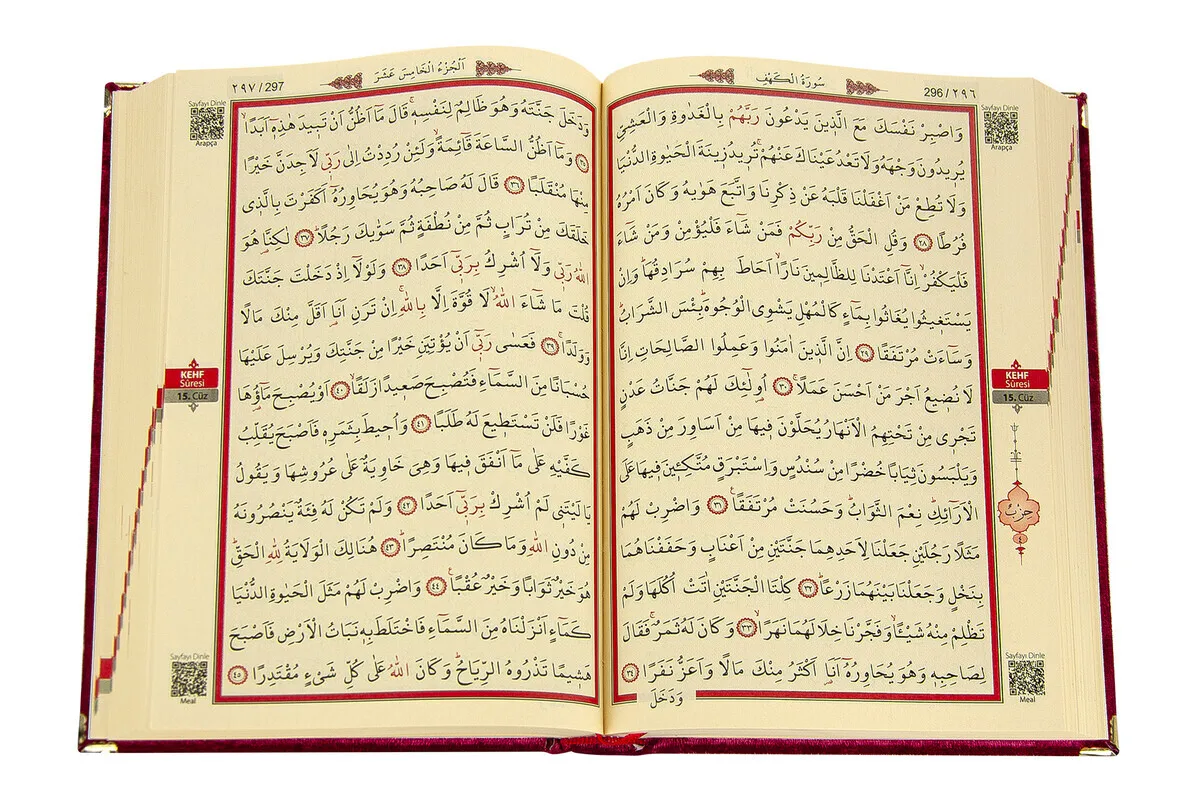 سُورَةُ الْكَهْفِ
296 / ٢٩٦
Sayfayı Dinle
Arapça
وَاصْبِرْ نَفْسَكَ مَعَ الَّذٖينَ يَدْعُونَ رَبَّهُمْ بِالْغَدٰوةِ وَالْعَشِىِّ
يُرٖيدُونَ وَجْهَهُ وَلَا تَعْدُ عَيْنَاكَ عَنْهُمْۚ تُرٖيدُ زٖينَةَ الْحَيٰوةِ الدُّنْيَاۚ
وَلَا تُطِعْ مَنْ اَغْفَلْنَا قَلْبَهُ عَنْ ذِكْرِنَا وَاتَّبَعَ هَوٰيهُ وَكَانَ اَمْرُهُ
فُرُطًا ٢٨ وَقُلِ الْحَقُّ مِنْ رَبِّكُمْ فَمَنْ شَٓاءَ فَلْيُؤْمِنْ وَمَنْ شَٓاءَ
فَلْيَكْفُرْۙ اِنَّٓا اَعْتَدْنَا لِلظَّالِمٖينَ نَارًاۙ اَحَاطَ بِهِمْ سُرَادِقُهَاؕ وَاِنْ
يَسْتَغٖيثُوا يُغَاثُوا بِمَٓاءٍ كَالْمُهْلِ يَشْوِى الْوُجُوهَؕ بِئْسَ الشَّرَابُؕ
وَسَٓاءَتْ مُرْتَفَقًا ٢٩ اِنَّ الَّذٖينَ اٰمَنُوا وَعَمِلُوا الصَّالِحَاتِ اِنَّا
لَا نُضٖيعُ اَجْرَ مَنْ اَحْسَنَ عَمَلًاۚ ٣٠ اُولٰٓئِكَ لَهُمْ جَنَّاتُ عَدْنٍ
تَجْرٖى مِنْ تَحْتِهِمُ الْاَنْهَارُ يُحَلَّوْنَ فٖيهَا مِنْ اَسَاوِرَ مِنْ ذَهَبٍ
وَيَلْبَسُونَ ثِيَابًا خُضْرًا مِنْ سُنْدُسٍ وَاِسْتَبْرَقٍ مُتَّكِـٖٔينَ فٖيهَا عَلَى
الْاَرَٓائِكِؕ نِعْمَ الثَّوَابُؕ وَحَسُنَتْ مُرْتَفَقًا ٣١ وَاضْرِبْ لَهُمْ
مَثَلًا رَجُلَيْنِ جَعَلْنَا لِاَحَدِهِمَا جَنَّتَيْنِ مِنْ اَعْنَابٍ وَحَفَفْنَاهُمَا
بِنَخْلٍ وَجَعَلْنَا بَيْنَهُمَا زَرْعًاؕ ٣٢ كِلْتَا الْجَنَّتَيْنِ اٰتَتْ اُكُلَهَا وَلَمْ
تَظْلِمْ مِنْهُ شَيْـًٔاۙ وَفَجَّرْنَا خِلَالَهُمَا نَهَرًاۙ ٣٣ وَكَانَ لَهُ ثَمَرٌۚ فَقَالَ
لِصَاحِبِهٖ وَهُوَ يُحَاوِرُهُٓ اَنَا۬ اَكْثَرُ مِنْكَ مَالًا وَاَعَزُّ نَفَرًا ٣٤
وَدَخَلَ
KEHF
Sûresi
15. Cüz
حِزْبٌ
٤
Sayfayı Dinle
Meal
اَلْجُزْءُ الْخَامِسَ عَشَرَ
٢٩٧ / 297
Sayfayı Dinle
Arapça
وَدَخَلَ جَنَّتَهُ وَهُوَ ظَالِمٌ لِنَفْسِهٖۚ قَالَ مَٓا اَظُنُّ اَنْ تَبٖيدَ هٰذِهٖٓ اَبَدًاۙ
٣٥ وَمَٓا اَظُنُّ السَّاعَةَ قَٓائِمَةً وَلَئِنْ رُدِدْتُ اِلٰى رَبّٖى لَاَجِدَنَّ خَيْرًا
مِنْهَا مُنْقَلَبًا ٣٦ قَالَ لَهُ صَاحِبُهُ وَهُوَ يُحَاوِرُهُٓ اَكَفَرْتَ بِالَّذٖى
خَلَقَكَ مِنْ تُرَابٍ ثُمَّ مِنْ نُطْفَةٍ ثُمَّ سَوّٰيكَ رَجُلًاؕ ٣٧ لٰكِنَّا۬ هُوَ
اللّٰهُ رَبّٖى وَلَٓا اُشْرِكُ بِرَبّٖٓى اَحَدًا ٣٨ وَلَوْلَٓا اِذْ دَخَلْتَ جَنَّتَكَ
قُلْتَ مَا شَٓاءَ اللّٰهُۙ لَا قُوَّةَ اِلَّا بِاللّٰهِۚ اِنْ تَرَنِ اَنَا۬ اَقَلَّ مِنْكَ مَالًا
وَوَلَدًاۚ ٣٩ فَعَسٰى رَبّٖٓى اَنْ يُؤْتِيَنِ خَيْرًا مِنْ جَنَّتِكَ وَيُرْسِلَ عَلَيْهَا
حُسْبَانًا مِنَ السَّمَٓاءِ فَتُصْبِحَ صَعٖيدًا زَلَقًاۙ ٤٠ اَوْ يُصْبِحَ مَٓاؤُ۬هَا
غَوْرًا فَلَنْ تَسْتَطٖيعَ لَهُ طَلَبًا ٤١ وَاُحٖيطَ بِثَمَرِهٖ فَاَصْبَحَ يُقَلِّبُ
كَفَّيْهِ عَلٰى مَٓا اَنْفَقَ فٖيهَا وَهِىَ خَاوِيَةٌ عَلٰى عُرُوشِهَا وَيَقُولُ
يَا لَيْتَنٖى لَمْ اُشْرِكْ بِرَبّٖٓى اَحَدًا ٤٢ وَلَمْ تَكُنْ لَهُ فِئَةٌ يَنْصُرُونَهُ
مِنْ دُونِ اللّٰهِ وَمَا كَانَ مُنْتَصِرًاؕ ٤٣ هُنَالِكَ الْوَلَايَةُ لِلّٰهِ الْحَقِّؕ
هُوَ خَيْرٌ ثَوَابًا وَخَيْرٌ عُقْبًاۚ ٤٤ وَاضْرِبْ لَهُمْ مَثَلَ الْحَيٰوةِ الدُّنْيَا
كَمَٓاءٍ اَنْزَلْنَاهُ مِنَ السَّمَٓاءِ فَاخْتَلَطَ بِهٖ نَبَاتُ الْاَرْضِ فَاَصْبَحَ
هَشٖيمًا تَذْرُوهُ الرِّيَاحُؕ وَكَانَ اللّٰهُ عَلٰى كُلِّ شَىْءٍ مُقْتَدِرًا ٤٥
KEHF
Sûresi
15. Cüz
Sayfayı Dinle
Meal